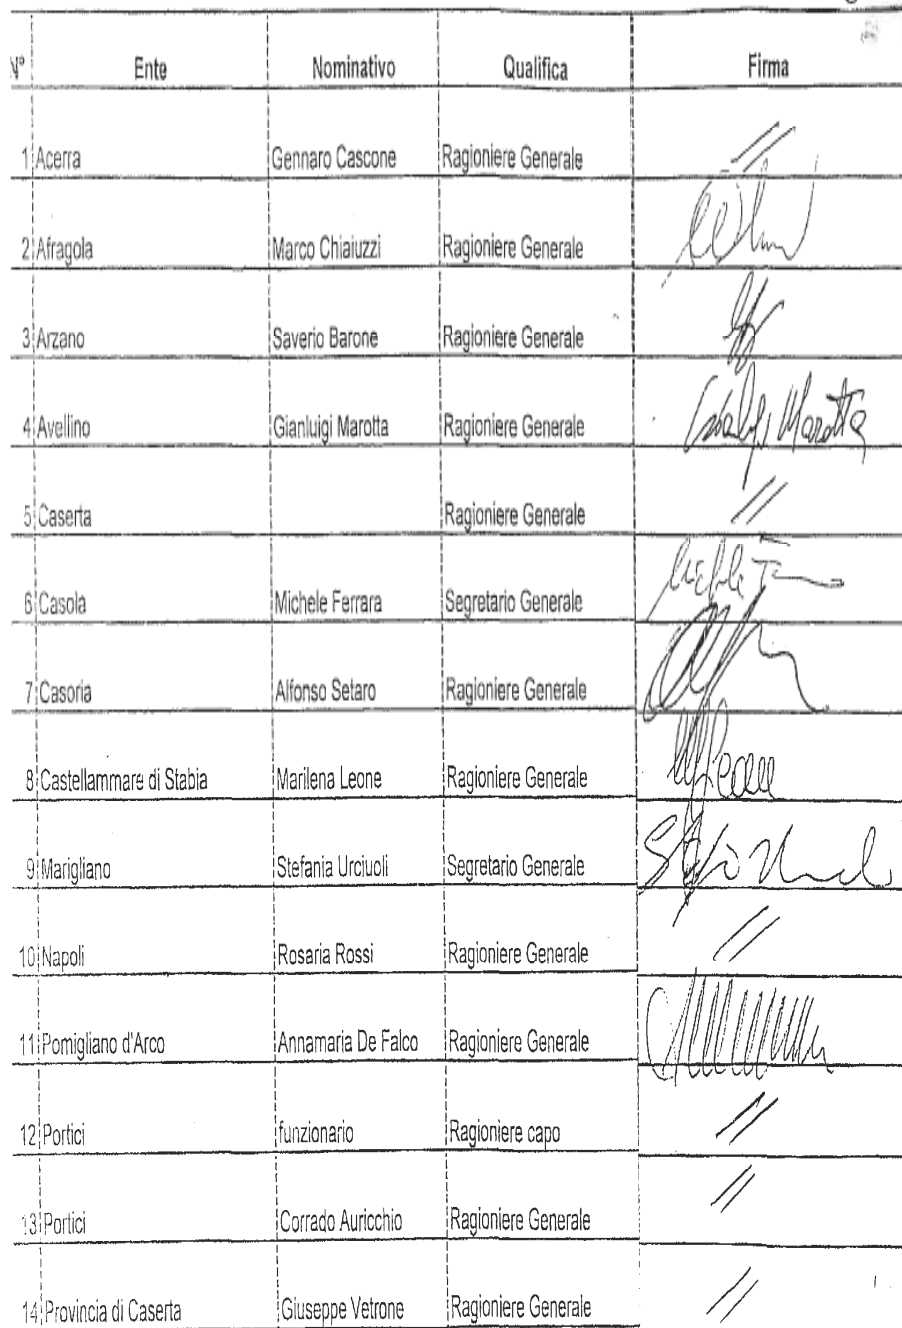 N° Ente Nominativo Qualifica Firma
1 Acerra Gennaro Cascone Ragioniere Generale //
2 Afragola Marco Chiaiuzzi Ragioniere Generale
3 Arzano Saverio Barone Ragioniere Generale
4 Avellino Gianluigi Marotta Ragioniere Generale Marotta
5 Caserta Ragioniere Generale //
6 Casola Michele Ferrara Segretario Generale
7 Casoria Alfonso Setaro Ragioniere Generale
8 Castellammare di Stabia Marilena Leone Ragioniere Generale
9 Marigliano Stefania Urciuoli Segretario Generale
10 Napoli Rosaria Rossi Ragioniere Generale //
11 Pomigliano d'Arco Annamaria De Falco Ragioniere Generale
12 Portici funzionario Ragioniere capo //
13 Portici Corrado Auricchio Ragioniere Generale //
14 Provincia di Caserta Giuseppe Vetrone Ragioniere Generale //